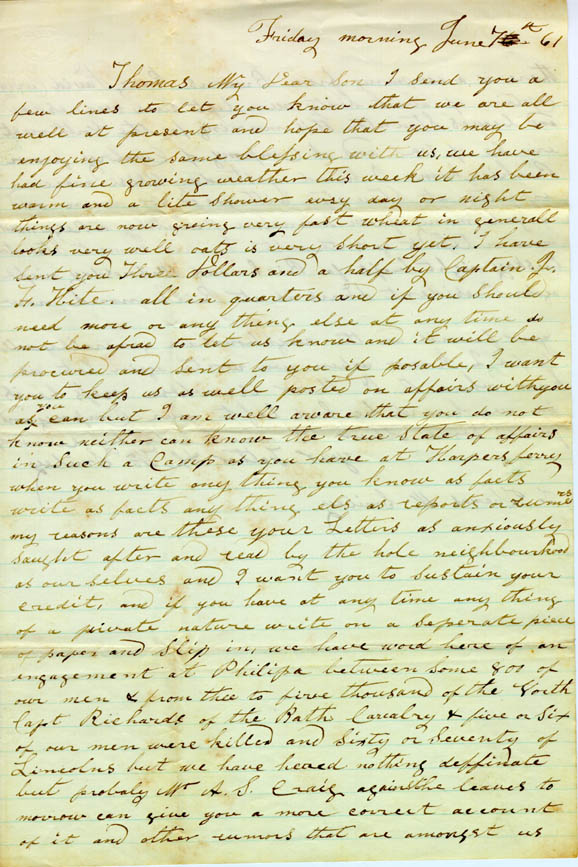 Friday morning June 7th 61
Thomas My Dear Son I send you a
few lines to let you know that we are all
well at present and hope that you may be
enjoying the same blessing with us, we have
had fine growing weather this week it has been
warm and a lite shower evry day or night
things are now groing very fast wheat in generall
looks very well oats is very short yet, I have
sent you Three Dollars and a half by Captain J.
H. Hite. all in quarters and if you should
need more or any thing else at any time do
not be afrad to let us know and it will be
procured and sent to you if posable, I want
you to keep us as well posted on affairs with you
as you can but I am well aware that you do not
know neither can know the true state of affairs
in such a Camp as you have at Harpers ferry
when you write any thing you know as facts
write as facts any thing els as reports or rumors
my reasons are these your Letters as anxiously
saught after and read by the hole neighbourhood
as our selves and I want you to sustain your
credit, and if you have at any time any thing
of a private nature write on a seperate piece
of paper and slip in, we have word here of an
engagement at Philipa between some 800 of
our men & from thee to five thousand of the North
Capt Richards of the Bath Cavalry & five or six
of our men were killed and sixty or seventy of
Lincolns but we have hered nothing deffinate
but probaly Mr A. S. Craig against he leaves to
morrow can give you a more correct account
of it and other rumors that are amongst us